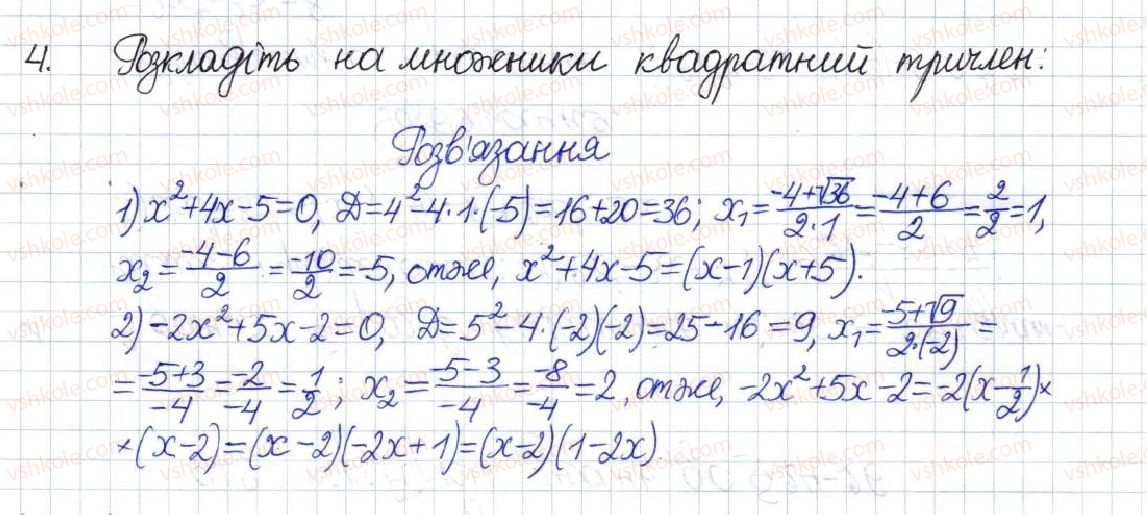 4. Розкладіть на множники квадратний тричлен:
Розв'язання
1) x²+4x-5=0, Д=4²-4·1·(-5)=16+20=36; x₁=(-4+√36)/(2·1)=(-4+6)/2=2/2=1,
x₂=(-4-6)/2=-10/2=-5, отже, x²+4x-5=(x-1)(x+5).
2) -2x²+5x-2=0, Д=5²-4·(-2)(-2)=25-16=9, x₁=(-5+√9)/(2·(-2))=
=(-5+3)/-4=-2/-4=1/2; x₂=(-5-3)/-4=-8/-4=2, отже, -2x²+5x-2=-2(x-1/2)×
×(x-2)=(x-2)(-2x+1)=(x-2)(1-2x).